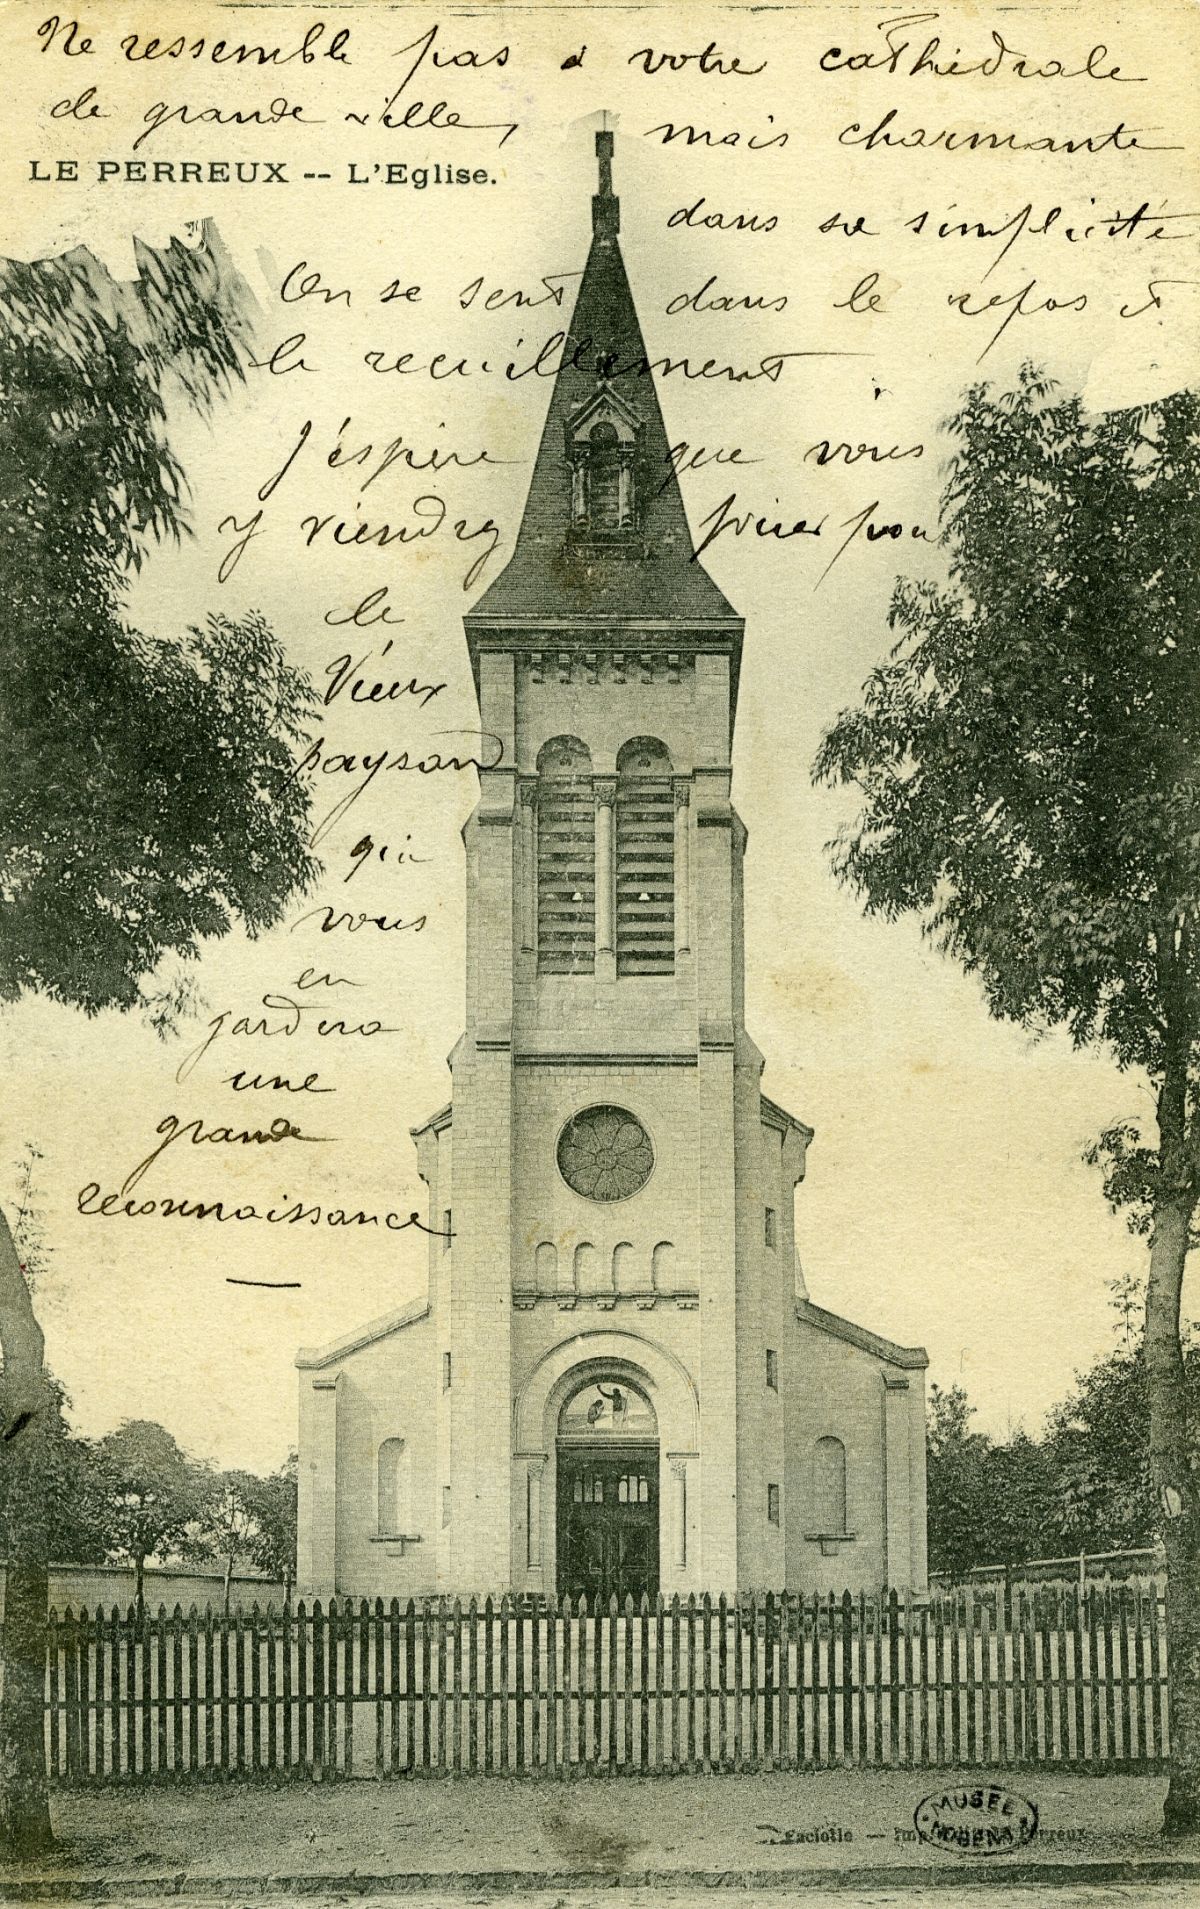 Ne ressemble pas à votre cathédrale
de grande ville, mais charmante
LE PERREUX -- L'Eglise.
dans sa simplicité
On se sent dans le repos et
le recuillement
J'éspère que vous
y viendrez prier pour
le
Vieux
paysan
qui
vous
en
gardera
une
grande
reconnaissance
MUSÉE
Faciolle — Imp. Perreux